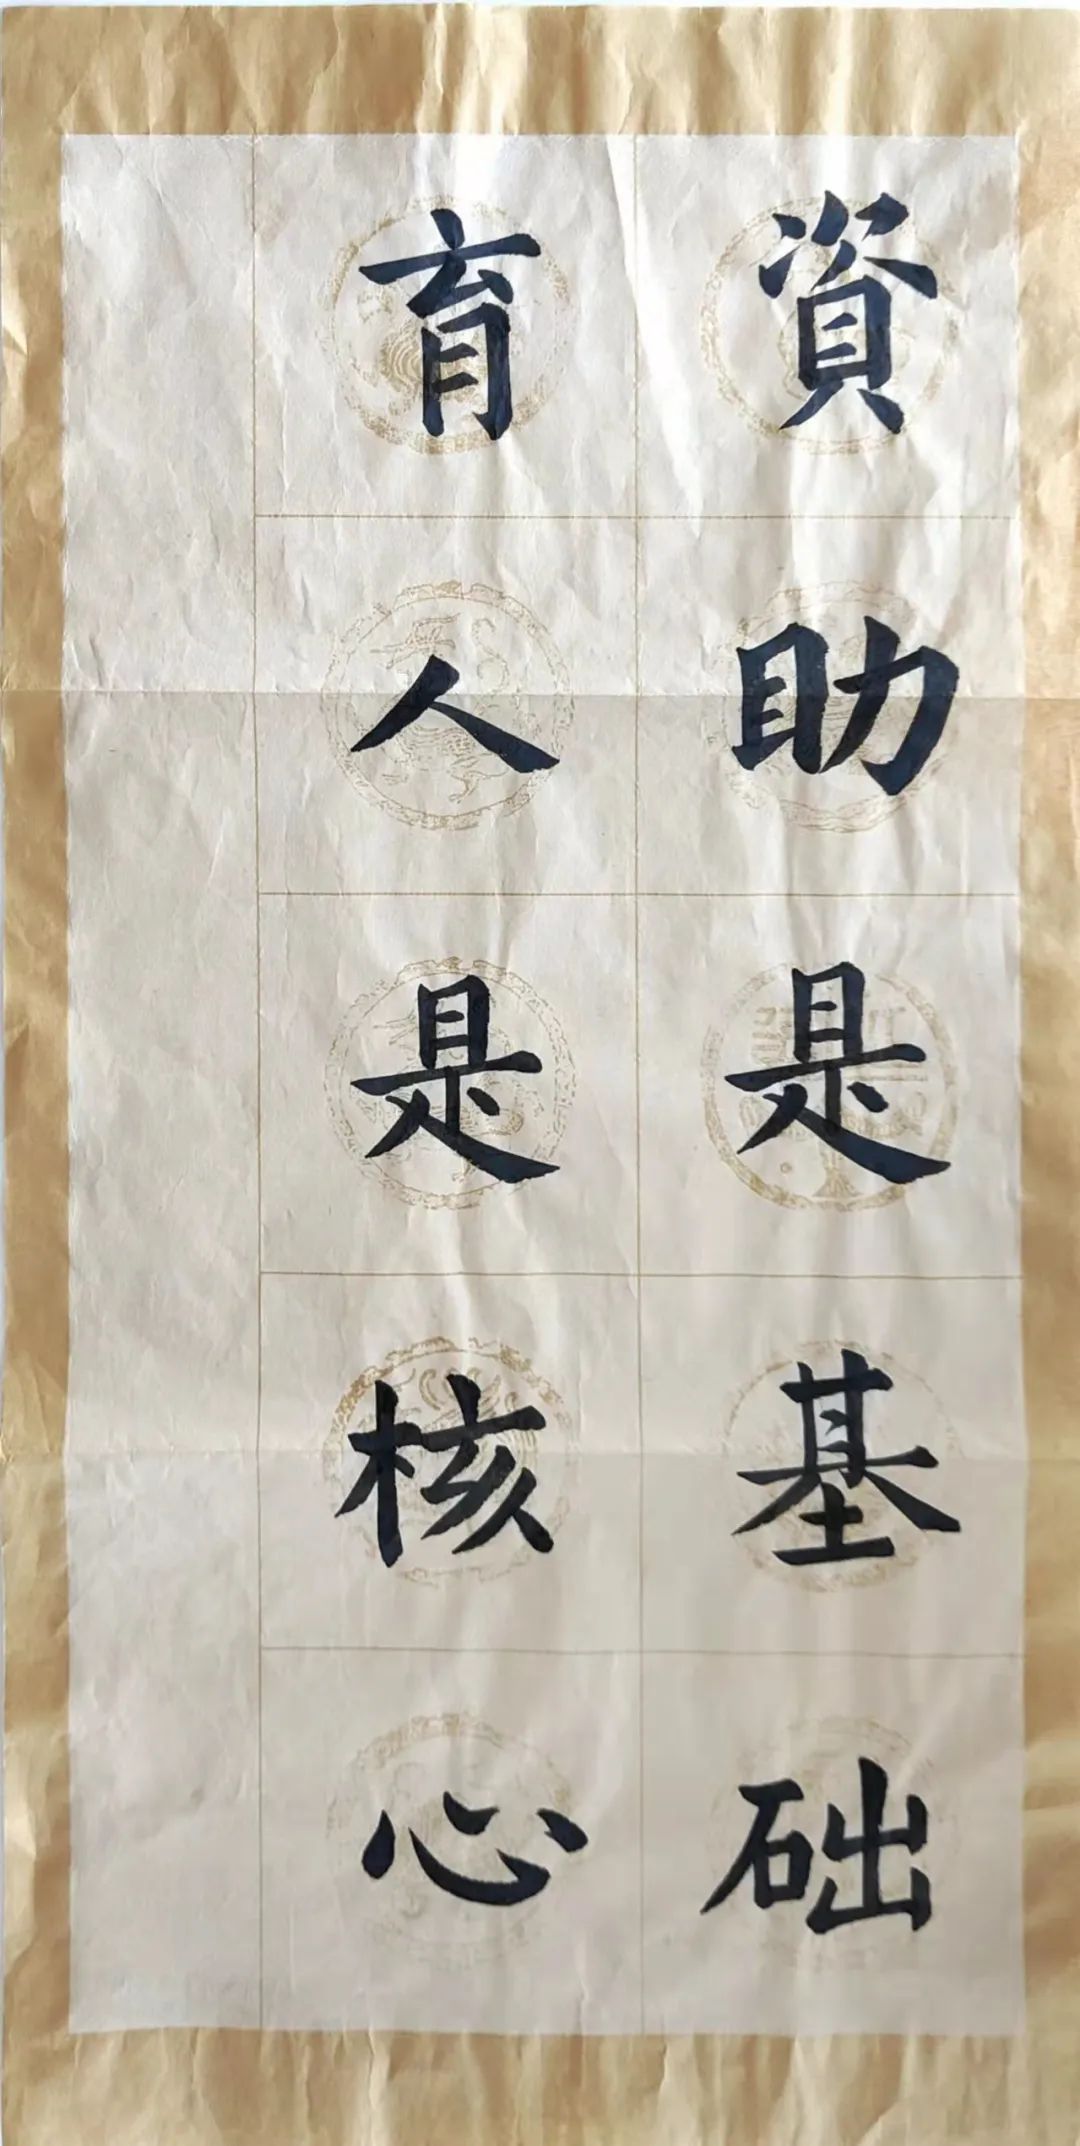 資助是基础
育人是核心